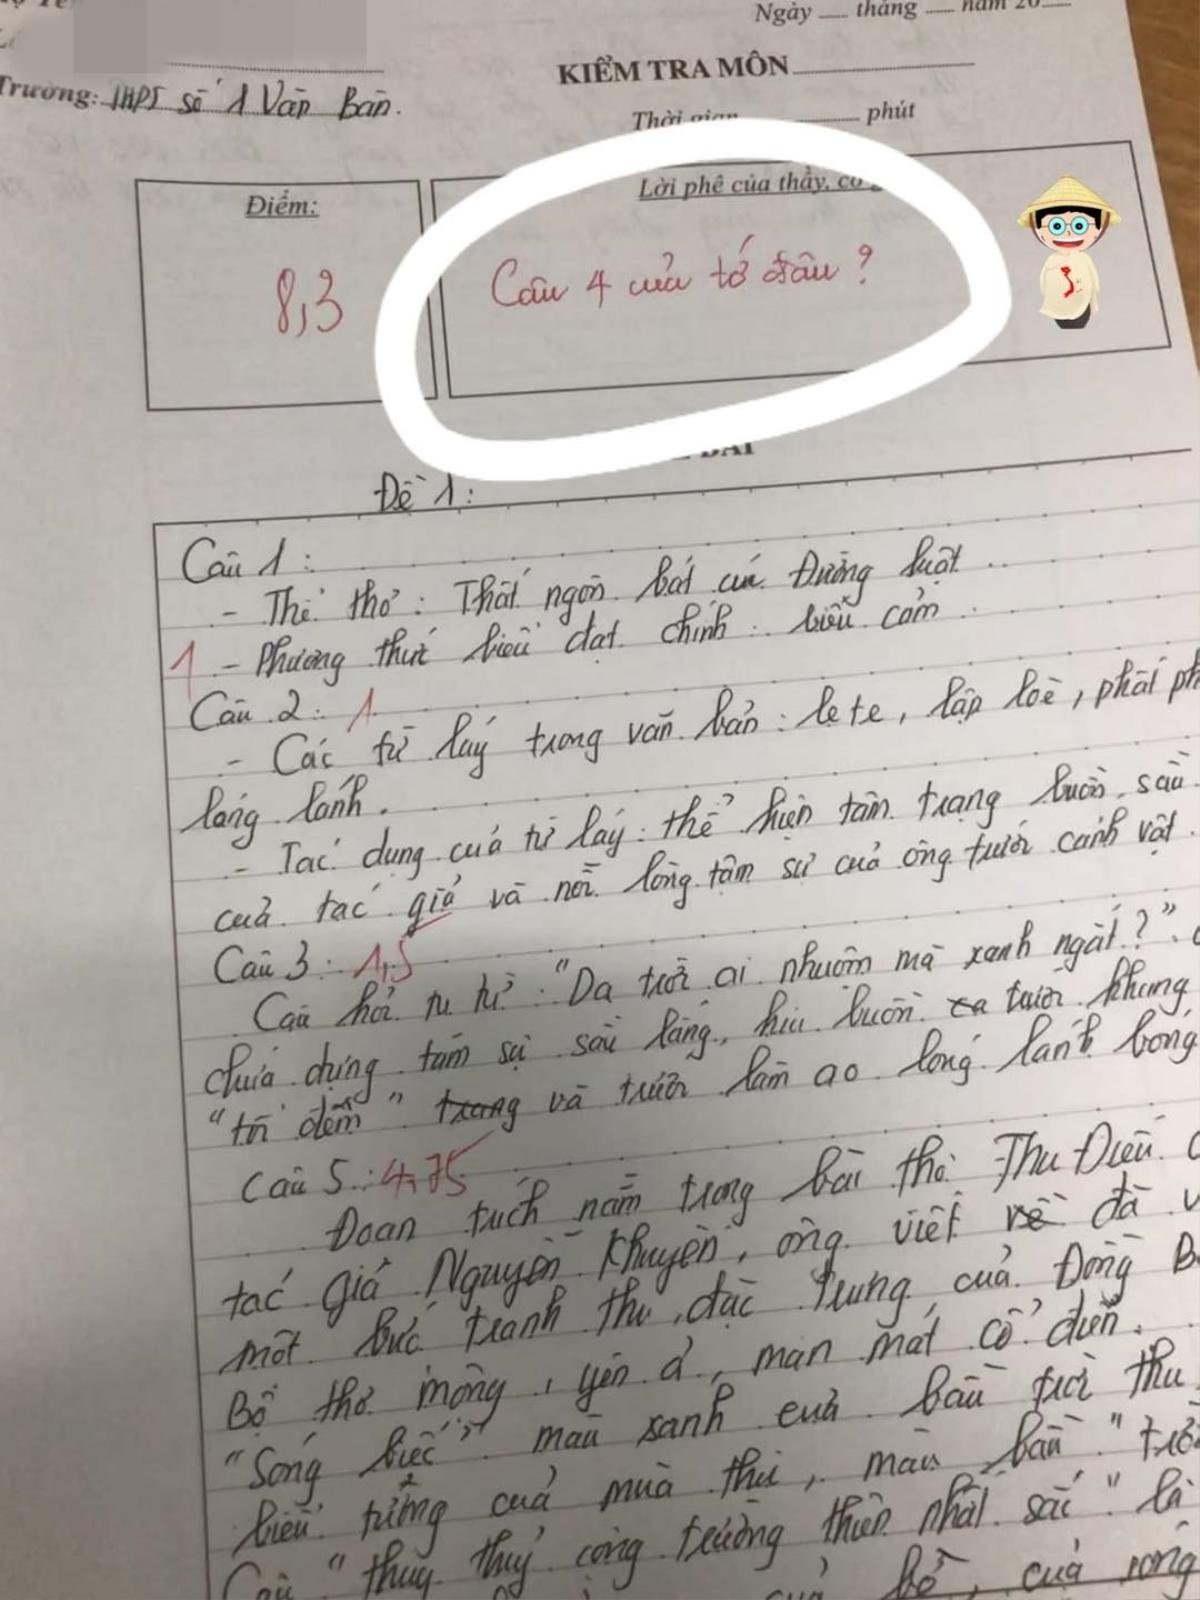 Ngày ..... tháng ..... năm 20.....
KIỂM TRA MÔN
Trường: THPT số 1 Văn Bàn.
Thời gian phút
Điểm:
Lời phê của thầy, cô
8,3
Câu 4 của tớ đâu?
BÀI
Đề 1:
Câu 1:
- Thể thơ: Thất ngôn bát cú Đường luật.
1 - Phương thức biểu đạt chính: biểu cảm
Câu 2: 1
- Các từ láy trong văn bản: le te, lập loè, phất ph
lóng lánh.
- Tác dụng của từ láy: thể hiện tâm trạng buồn sầu
của tác giả và nỗi lòng tâm sự của ông trước cảnh vật.
Câu 3: 1,5
Câu hỏi tu từ: "Da trời ai nhuộm mà xanh ngắt?".
chứa đựng tâm sự sâu lắng, hiu buồn trước khung
"tối đêm" trong và trước làn ao lóng lánh bóng
Câu 5: 4,75
Đoạn trích nằm trong bài thơ Thu Điếu
tác giả Nguyễn Khuyến, ông viết về đã v
một bức tranh thu đặc trưng của Đồng B
Bộ thơ mộng, yên ả, man mát cổ điển.
"Sóng biếc" màu xanh của bầu trời thu
biểu tượng của mùa thu, màu bầu "trời
Câu "thuỷ cộng trường thiên nhất sắc" là
của